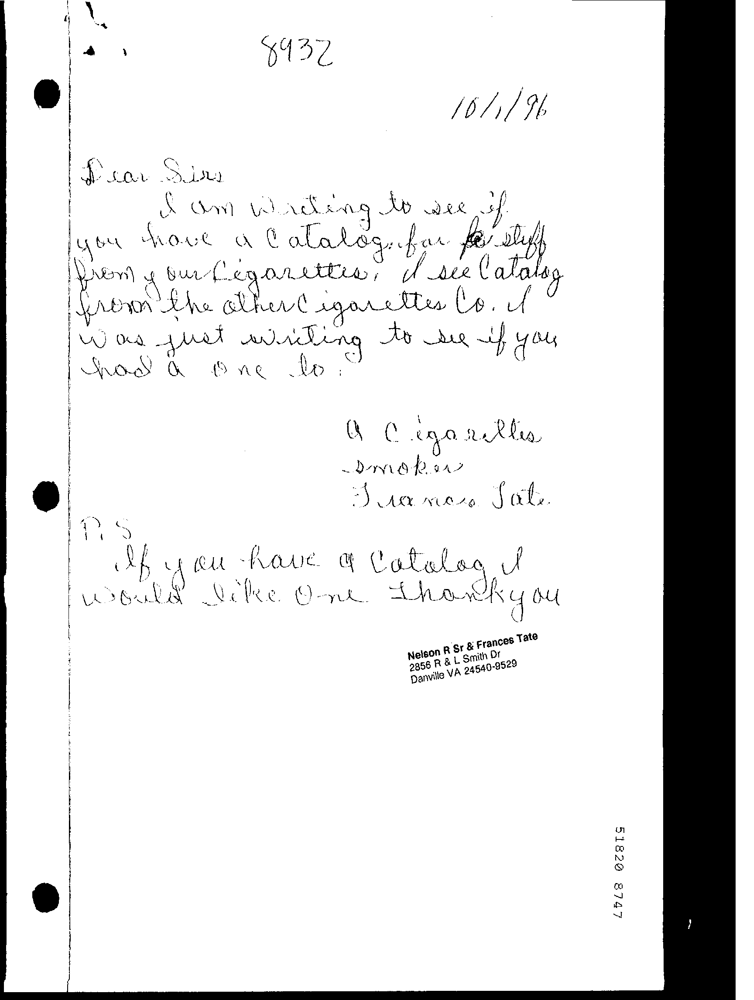 8932
10/1/96
Dear Sirs
I am writing to see if
you have a Catalog. for stuff
from your Cegarettes, I see Catalog
from the other Cigarettes Co. I
was just writing to see if you
had a one to.
A Cegarettes
smoker
Frances Tate
P.S
If you have a Catalog I
would like One Thank you
Nelson R Sr & Frances Tate
2856 R & L Smith Dr
Danville VA 24540-9529
51820 8747